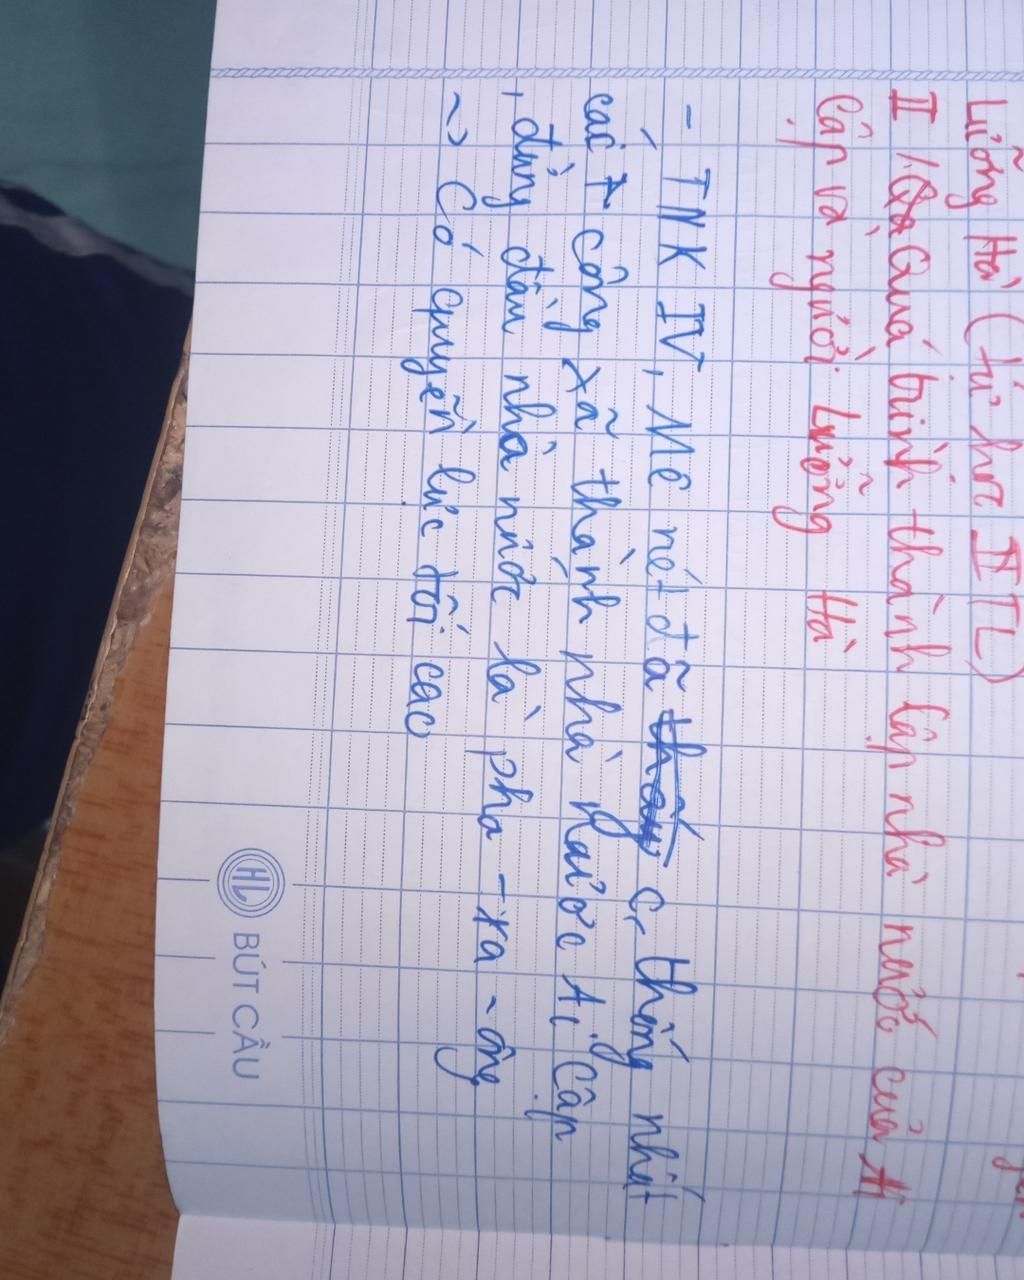 Lưỡng Hà (tự học II TL)
II / Quá trình thành lập nhà nước của Ai
Cập và người Lưỡng Hà
- TNK IV, Mê nét đã thống nhất
các công xã thành nhà nước Ai Cập
, đứng đầu nhà nước là pha-ra-ông
~> Có quyền lực tối cao
HL BÚT CẦU